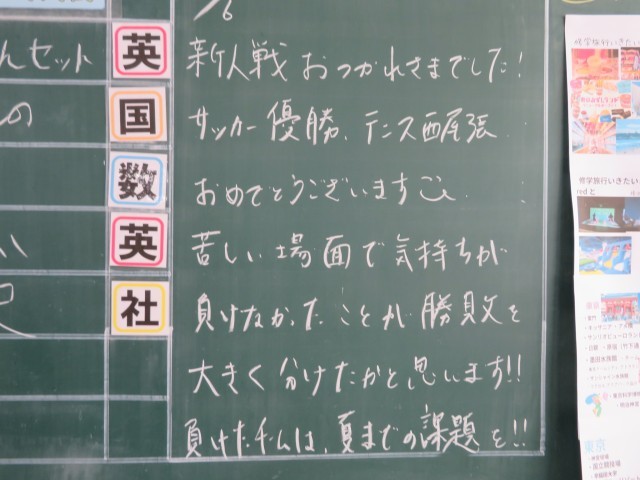 んセット
英
国
数
英
社
新人戦おつかれさまでした!
サッカー優勝、テニス西尾張
おめでとうございます
苦しい場面で気持ちが
負けなかったことが勝敗を
大きく分けたかと思います!!
負けたチームは、夏までの課題を!!
修学旅行いきたい
修学旅行いきたい
red と
東京